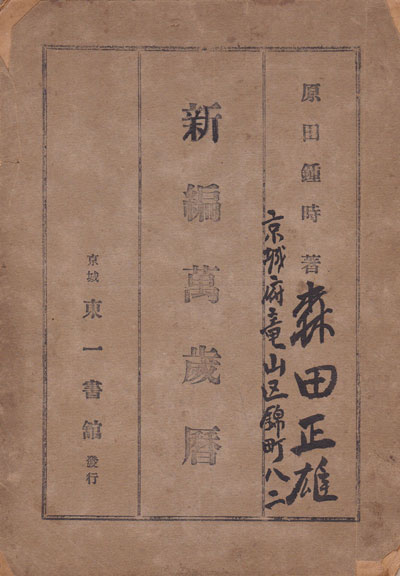 原田鍾時著
森田正雄
京城府竜山区錦町八二
新編萬歲曆
京城 東一書舘 發行